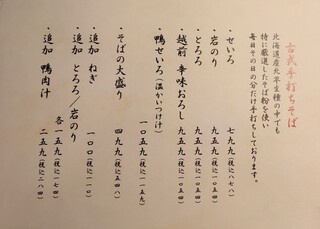 古式手打ちそば
北海道産北早生種の中でも
特に厳選したそば粉を使い
毎日その日の分だけ手打ちしております。
・せいろ 七九九(税込八七八)
・岩のり 九五九(税込一〇五四)
・とろろ 九五九(税込一〇五四)
越前 辛味おろし 九五九(税込一〇五四)
・鴨せいろ(温かいつけ汁) 一〇五九(税込一一五九)
・そばの大盛り 四九九(税込五四八)
・追加 ねぎ 一〇〇(税込一一〇)
・追加 とろろ/岩のり 各一五九(税込一七四)
・追加 鴨肉汁 二五九(税込二八四)